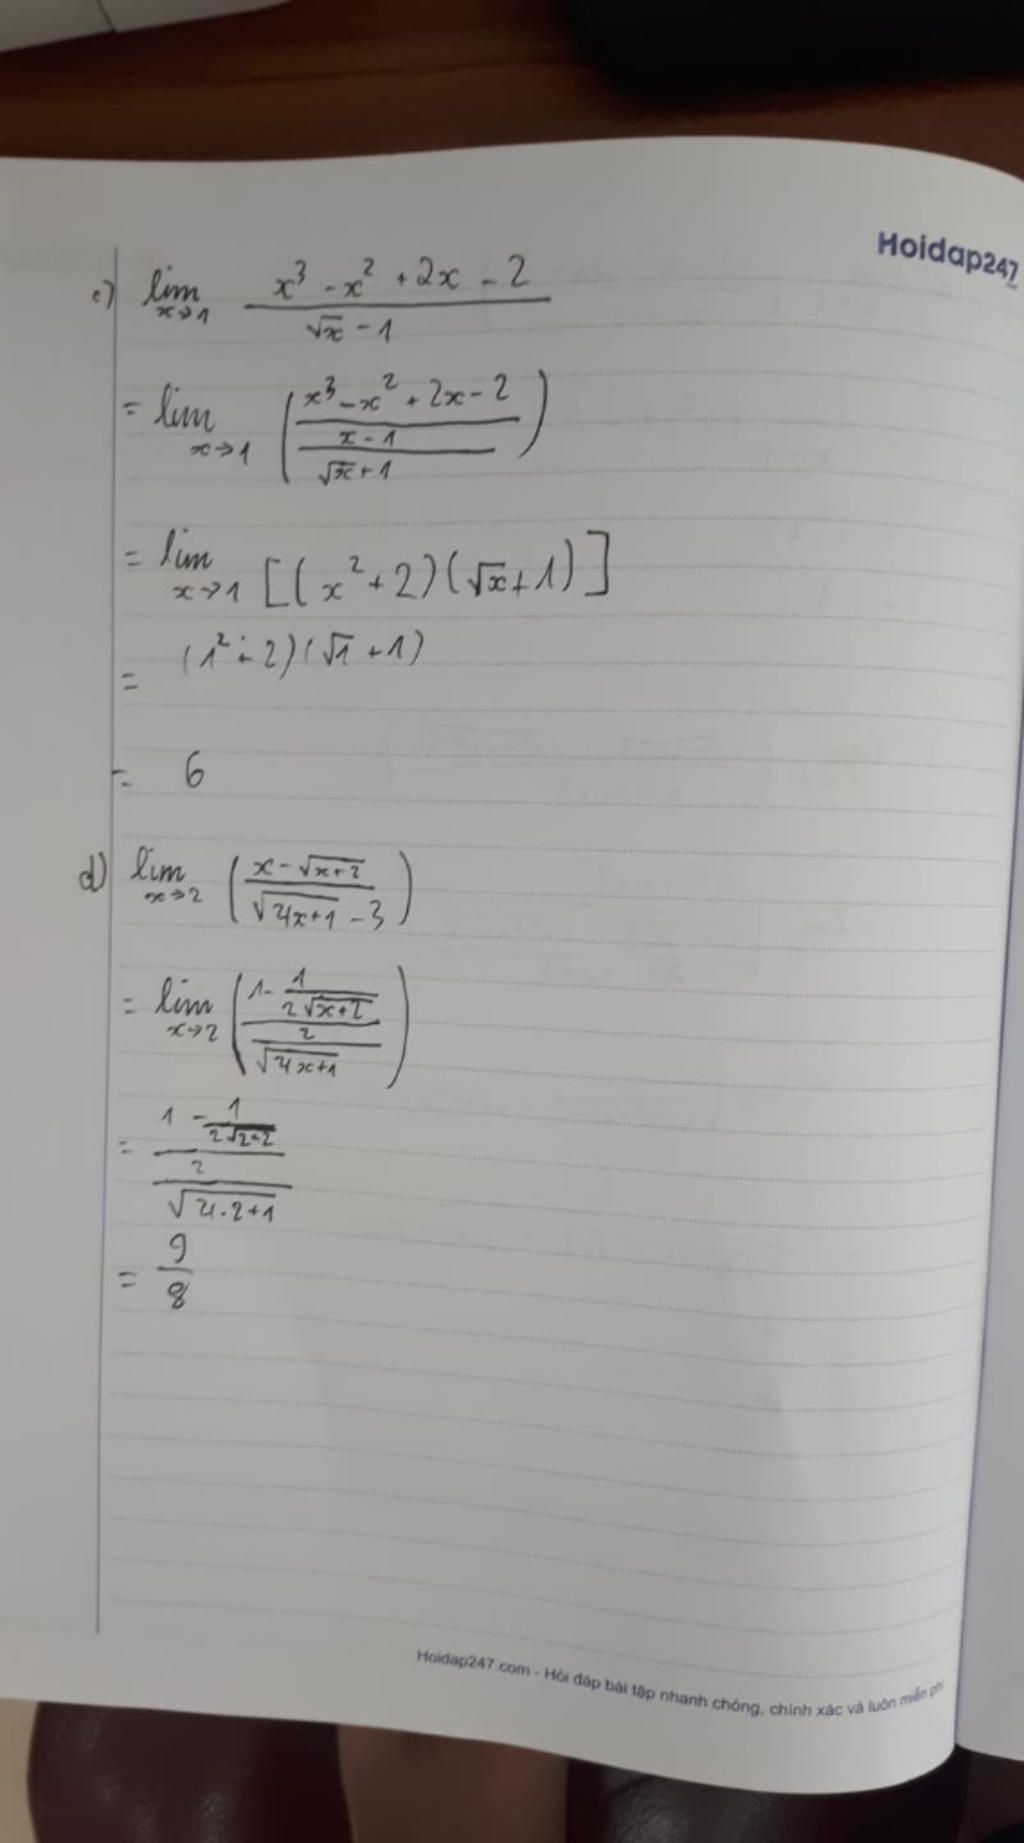 Hoidap247
c) lim x→1 (x³ - x² + 2x - 2)/(√x - 1)
= lim x→1 ((x³ - x² + 2x - 2)/((x - 1)/(√x + 1)))
= lim x→1 [(x² + 2)(√x + 1)]
= (1² + 2)(√1 + 1)
= 6
d) lim x→2 ((x - √(x+2))/(√(4x+1) - 3))
= lim x→2 ((1 - 1/(2√(x+2)))/(2/√(4x+1)))
= (1 - 1/(2√(2+2)))/(2/√(4.2+1))
= 9/8
Hoidap247.com - Hỏi đáp bài tập nhanh chóng, chính xác và luôn miễn phí